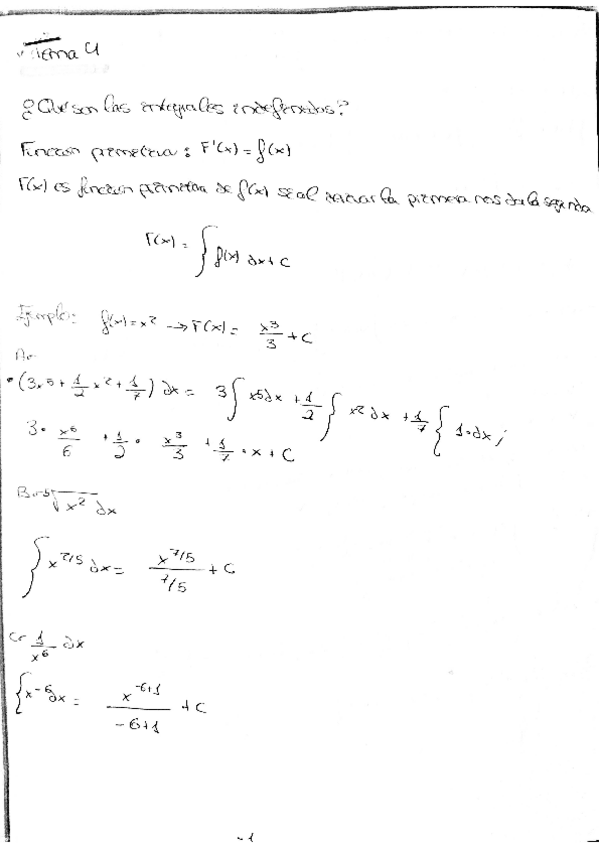 Tema 4
¿Qué son las integrales indefinidas?
Función primitiva: F'(x) = f(x)
F(x) es función primitiva de f(x) si al derivar la primera nos da la segunda
F(x) = ∫ f(x) dx + C
Ejemplo: f(x) = x² → F(x) = x³/3 + C
A.-
• (3x⁵ + 1/2 x² + 1/7) dx = 3 ∫ x⁵ dx + 1/2 ∫ x² dx + 1/7 ∫ 1·dx ;
3· x⁶/6 + 1/2 · x³/3 + 1/7 · x + C
B.- ⁵√x² dx
∫ x^2/5 dx = x^7/5 / 7/5 + C
C.- 1/x⁶ dx
∫ x^-6 dx = x^-6+1 / -6+1 + C
- 1